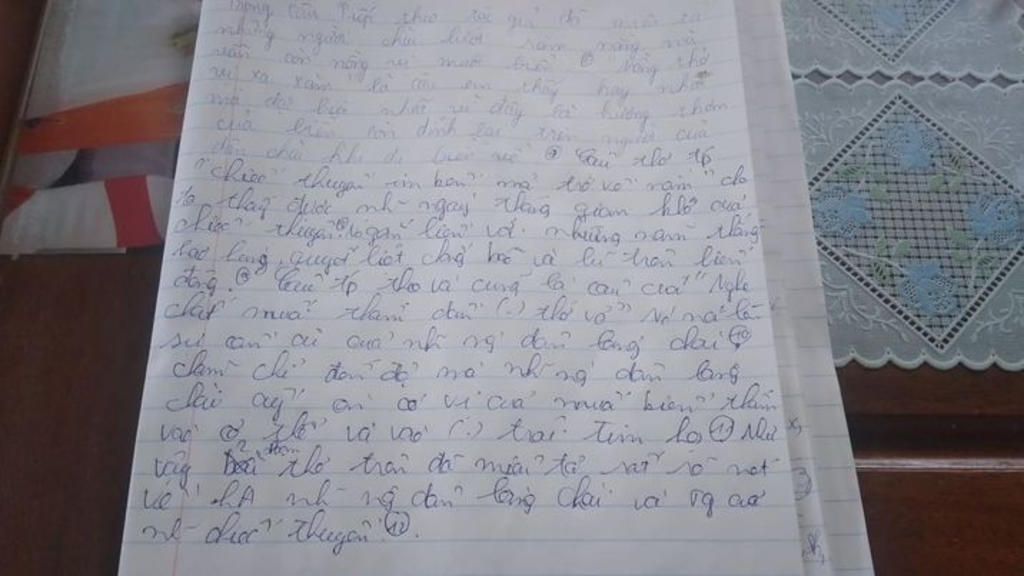 trong câu tiếp theo tác giả đã miêu tả
những người chài lưới rám nắng mà
vẫn còn nồng vị muối biển. "Nồng thở
vị xa xăm" là câu em thấy hay nhất
mà đại bởi nhất vì đây là hương thơm
của biển còn dính lại trên người của
dân chài khi đi biển về ⑦ Câu thơ tp
"chiếc thuyền im bến mỏi trở về nằm" cho
ta thấy được nh~ ngày tháng gian khổ của
chiếc thuyền ⑧ Nó gắn liền với những năm tháng
hào hùng, quyết liệt chống bão và lũ trên biển
đông. ⑨ Câu tp theo và cũng là câu cuối "Nghe
chất muối thấm dần (.) thớ vỏ" nó nói lên
sự cần cù của nh~ ng' dân làng chài, ⑩
chăm chỉ đến độ mà nh~ ng' dân làng
chài ấy ăn có vị của muối biển thấm
vào cơ thể và vào (.) trái tim họ ⑪ Như
vậy 2 thơ trên đã miêu tả rất rõ nét
về hA nh~ ng' dân làng chài và vq của
nh~ chiếc thuyền. ⑫